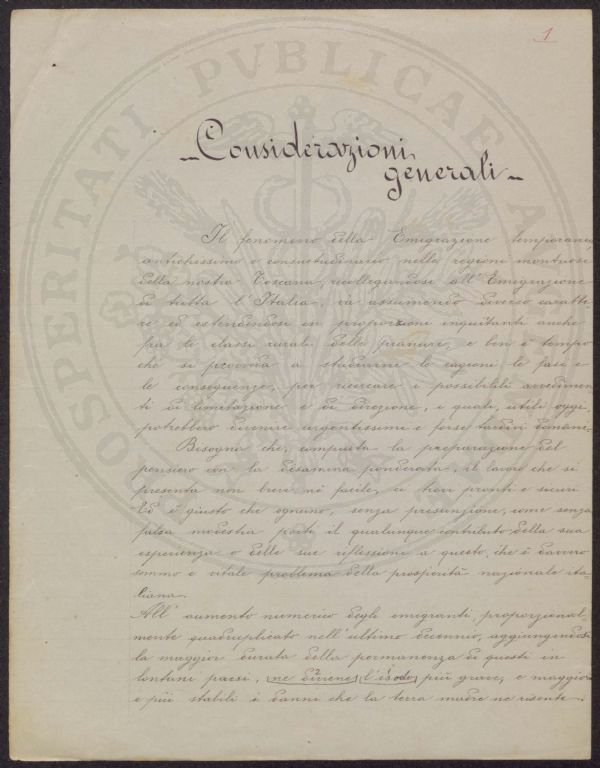 1
Considerazioni
generali
Il fenomeno della Emigrazione temporanea,
antichissimo e consuetudinario nelle regioni montuose
della nostra Toscana, ricollegandosi all'Emigrazione
di tutta l'Italia, va assumendo diverso caratte
re ed estendendosi in proporzioni inquitanti anche
fra le classi rurali delle pianure, e ben è tempo
che si provveda a studiarne le cagioni le fasi e
le conseguenze, per ricercare i possibili avvedimen
ti di limitazione e di direzione, i quali, utili oggi,
potrebbero divenire urgentissimi e forse tardivi domani.
Bisogna che, compiuta la preparazione del
pensiero con la disamina ponderata, il lavoro che si
presenta non breve, nè facile, ci trovi pronti e sicuri
Ed è giusto che ognuno, senza presunzione, come senza
falsa modestia porti il qualunque contributo della sua
esperienza o delle sue riflessioni a questo, che è davvero
sommo e vitale problema della prosperità nazionale ita-
liana.
All'aumento numerico degli emigranti, proporzional-
mente quadruplicato nell'ultimo decennio, aggiungendosi
la maggior durata della permanenza di questi in
lontani paesi, ne diviene l'esodo più grave, e maggiori
e più stabili i danni che la terra madre ne risente.
PROSPERITATI PVBLICAE